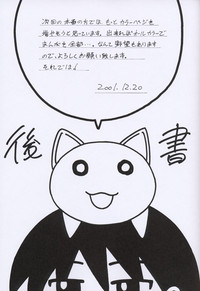 次回の本番の方では もっとカラーページを
増やそうと思っています。出来ればオールカラーで
まんがも全部…。なんて野望もあります
ので、よろしくお願い致します。
それでは♪
2001.12.20
後書